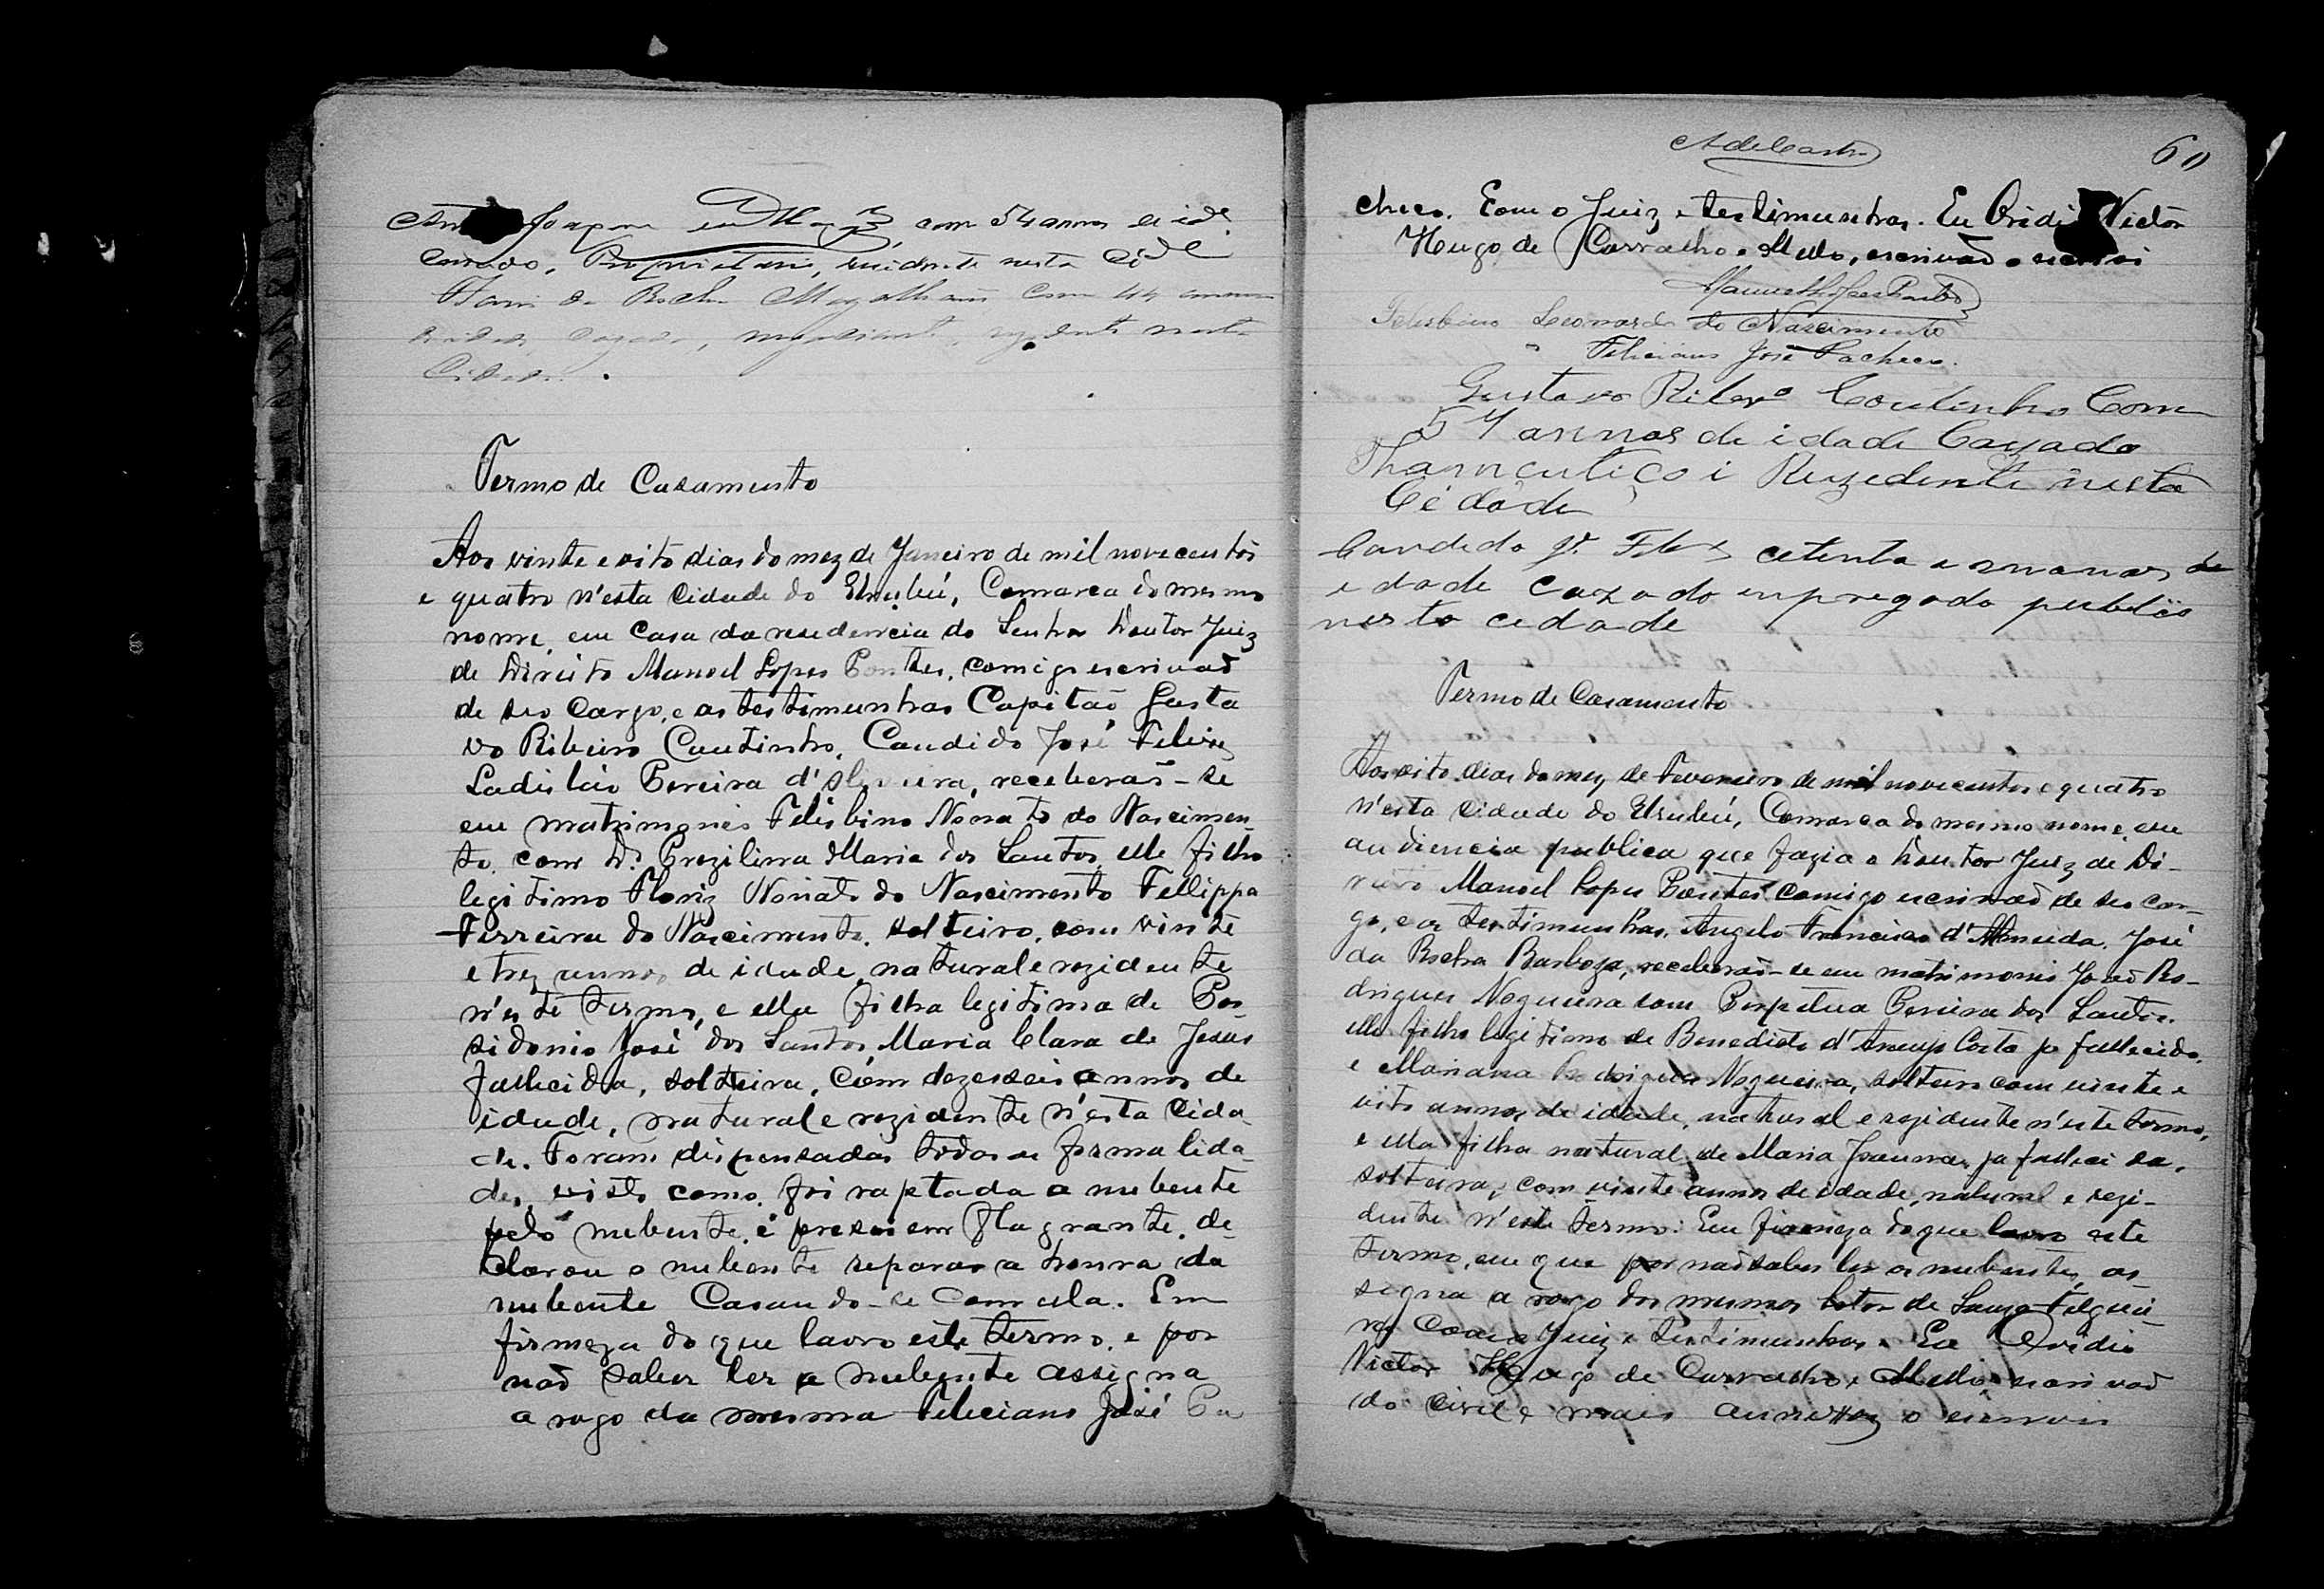 Joaquim com 54 annos de ide
Cazado, Proprietario, rezidente nesta Cide
da Rocha Magalhães com 44 annos
de idade, cazado, negociante, rezidente nesta
Cidade.
Termo de Casamento
Aos vinte e oito dias do mez de Janeiro de mil nove centos
e quatro n'esta Cidade do Urubú, Comarca do mesmo
nome, em Casa da residencia do Senhor Doutor Juiz
de Direito Manoel Lopes Pontes, comigo escrivaõ
de seo Cargo, e as testimunhas Capitaõ Gusta
vo Ribeiro Coutinho, Candido José Felix,
Ladisláo Pereira d'Oliveira, receberaõ-se
em matrimonio Felisbino Nonato do Nascimen-
to, com D. Brazilina Maria dos Santos, elle filho
legitimo Nonato do Nascimento Fellippa
Ferreira do Nascimento, solteiro, com vinte
e trez annos de idade, natural e rezidente
n'este termo, e ella filha legitima de Pos-
sidonio José dos Santos, Maria Clara de Jesus
fallecida, solteira, com dezesseis annos de
idade, natural e rezidente n'esta Cida-
de. Foram dispensadas todas as formalida-
des, visto como foi raptada a nubente
pelo nubente, e preso em flagrante, de-
clarou o nubente reparar a honra da
nubente Casando-se Com ella. Em
firmeza do que lavro este termo, e por
naõ saber ler a nubente assigna
a rogo da mesma Feleciano José Pa
60
checo. Com o Juiz e testimunhas. Eu Ovidio Victor
Hugo de Carvalho e Mello, escrivaõ o escrevi
Manoel Lopes Pontes
Felisbino Leonardo do Nascimento
Feliciano José Pacheco.
Gustavo Ribeiro Coutinho Com
57 annos de idade Cazado
Pharmcutiço i Rezedente nesta
Cidade
Candido Je Felix cetenta e annos de
edade cazado enpregado publico
nesta cedade
Termo de Casamento
Aos oito dias do mez de Fevereiro de mil novecentos e quatro
n'esta Cidade do Urubú, Comarca do mesmo nome, em
audiencia publica que fazia o Doutor Juiz de Di-
reito Manoel Lopes Pontes comigo escrivaõ de seo car-
go, e as testimunhas, Angelo Francisco d'Almeida, José
da Rocha Barboza, receberaõ-se em matrimonio Joaõ Ro-
drigues Nogueira com Perpetua Pereira dos Santos.
elle filho legitimo de Benedicto d'Araujo Costa ja fallecido,
e Mariana Rodrigues Nogueira, solteiro com vinte e
oito annos de idade, natural e rezidente n'este termo,
e ella filha natural de Maria Joanna, ja fallecida,
solteira, com vinte annos de idade, natural e rezi-
dente n'este termo. Em firmeza do que lavro este
termo, em que por naõ saber ler os nubentes, as-
signa a rogo dos mesmos de Souza Felguei-
ras Com o Juiz e testimunhas. Eu Ovidio
Victor Hugo de Carvalho e Mello, escrivaõ
do Civel e mais annexos o escrevi